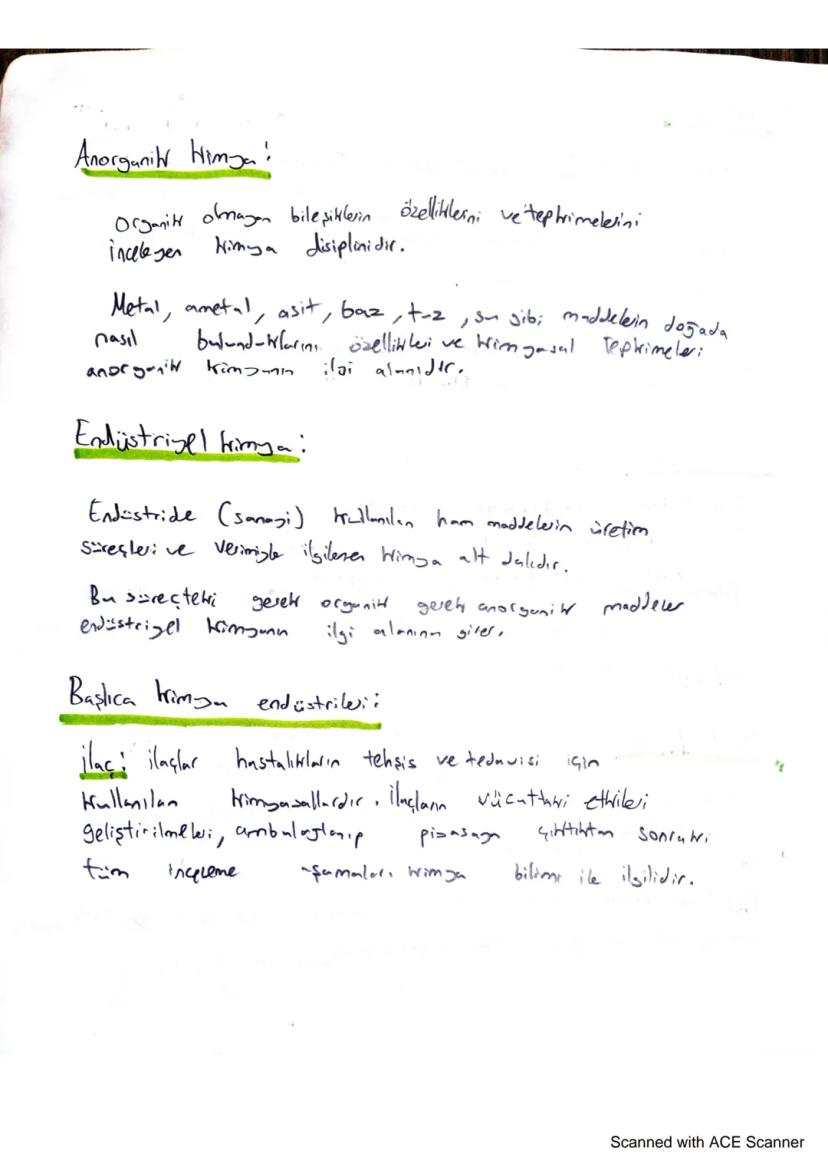 Anorganik kimya:
organik olmayan bileşiklerin özelliklerini ve tepkimelerini
inceleyen kimya disiplinidir.
Metal, ametal, asit, baz, tuz, su gibi maddelerin doğada
nasıl bulunduklarını özellikleri ve kimyasal tepkimeleri
anorganik kimyanın ilgi alanıdır.
Endüstriyel kimya:
Endüstride (sanayi) kullanılan ham maddelerin üretim
süreçleri ve verimiyle ilgilenen kimya alt dalıdır.
Bu süreçteki gerek organik gerek anorganik maddeler
endüstriyel kimyanın ilgi alanına girer.
Başlıca kimya endüstrileri:
ilaç: ilaçlar hastalıkların tehşis ve tedavisi için
kullanılan kimyasallardır. İlaçların vücuttaki etkileri
geliştirilmeleri, ambalajlanıp piyasaya çıktıktan sonraki
tüm inceleme aşamaları kimya bilimi ile ilgilidir.
Scanned with ACE Scanner